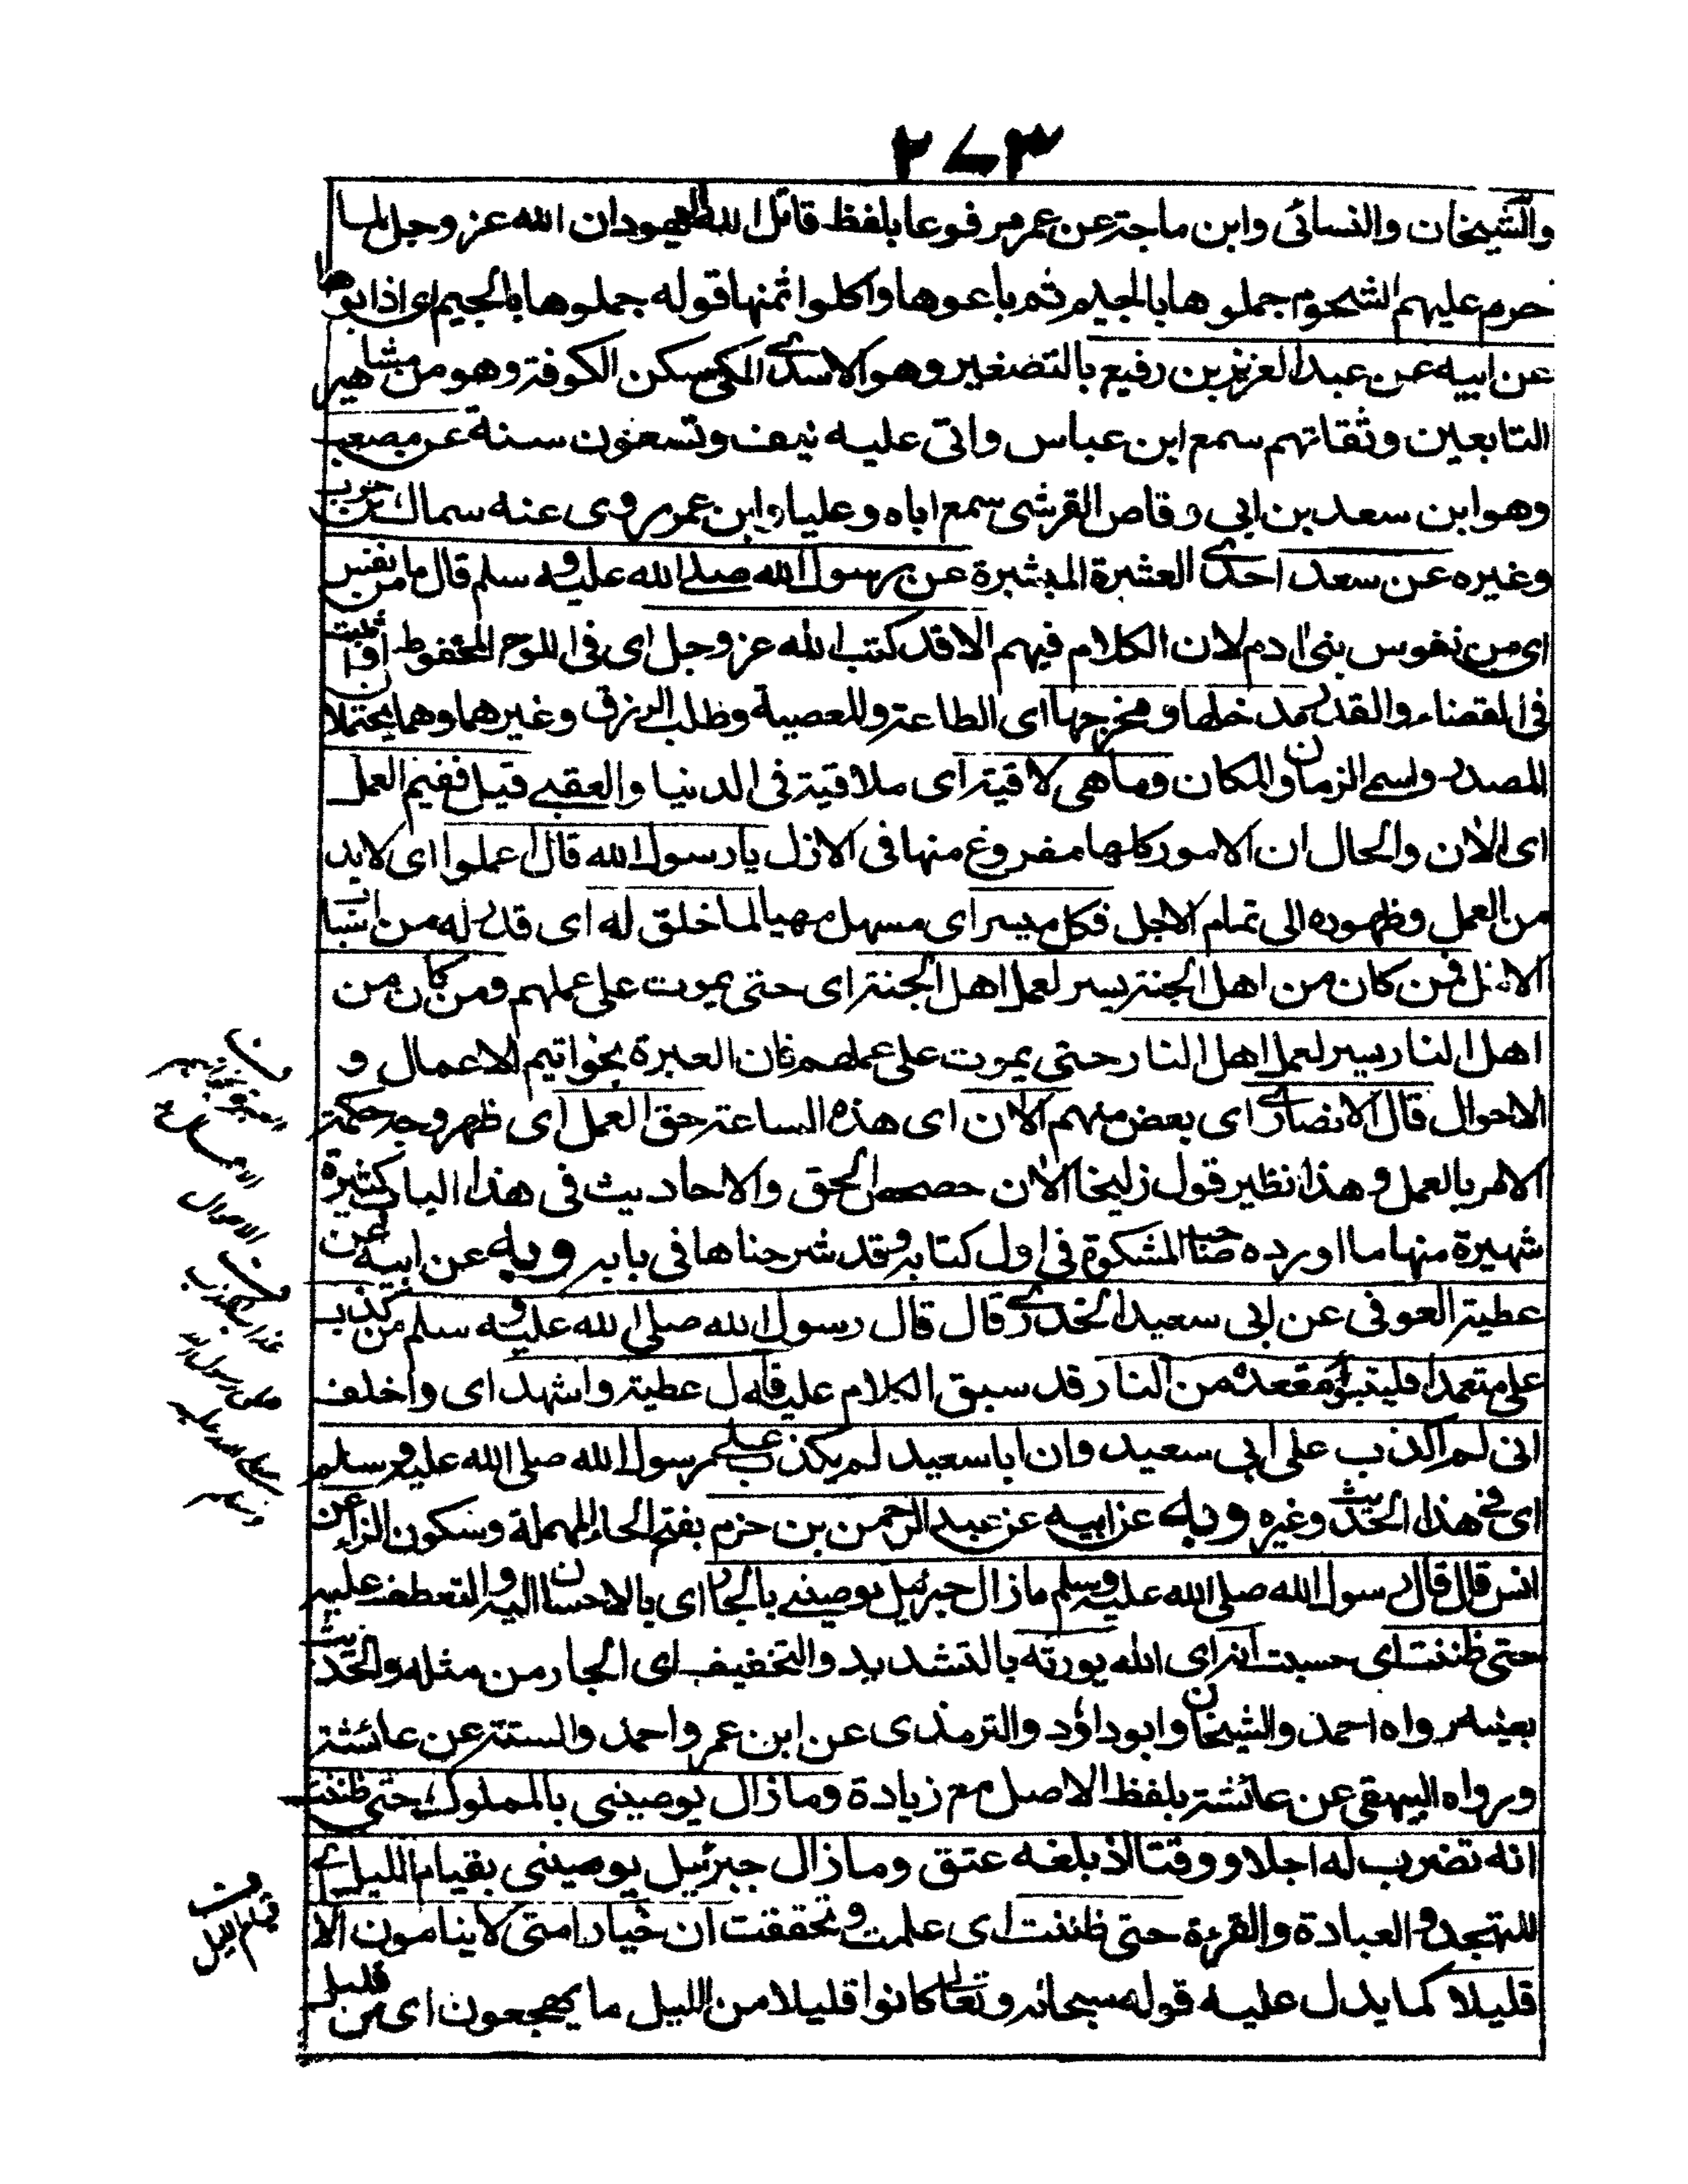 ٢٧٣
والشيخان والنسائى وابن ماجة عن عمر مرفوعا بلفظ قاتل الله اليهود ان الله عز وجل لما
حرم عليهم الشحوم جملوها بالجيم ثم باعوها واكلوا ثمنها قوله جملوها بالجيم اى اذابوها
عن ابيه عن عبد العزيز بن رفيع بالتصغير وهو الاسدى المكى سكن الكوفة وهو من مشاهير
التابعين وثقاتهم سمع ابن عباس واتى عليه نيف وتسعون سنة عن مصعب
وهو ابن سعد بن ابي وقاص القرشى سمع اباه وعليا وابن عمر روى عنه سماك بن حرب
وغيره عن سعد احدى العشرة المبشرة عن رسول الله صلى الله عليه وسلم قال ما من نفس
اى من نفوس بنى ادم لان الكلام فيهم الا قد كتب الله عز وجل اى فى اللوح المحفوظ او اثبت
فى القضاء والقدر مدخلها ومخرجها اى الطاعة والمعصية وطلب الرزق وغيرهما وهما يحتملان
المصدر واسم الزمان والمكان وما هى لاقية اى ملاقية فى الدنيا والعقبى قيل ففيم العمل
اى الان والحال ان الامور كلها مفروغ منها فى الازل يا رسول الله قال اعملوا اى لابد
من العمل وظهوره الى تمام الاجل فكل ميسر اى مسهل مهيا لما خلق له اى قدر له من اتيان
الازل فمن كان من اهل الجنة يسر لعمل اهل الجنة اى حتى يموت على عملهم ومن كان من
اهل النار يسر لعمل اهل النار حتى يموت على عملهم فان العبرة بخواتيم الاعمال و
الاحوال قال الانصارى اى بعض منهم الان اى هذه الساعة حق العمل اى ظهر وجه حكمة
الامر بالعمل وهذا نظير قول زليخا الان حصحص الحق والاحاديث فى هذا الباب كثيرة
شهيرة منها ما اورده صاحب المشكوة فى اول كتابه وقد شرحناها فى بابه وبه عن ابيه عن
عطية العوفى عن ابى سعيد الخدرى قال قال رسول الله صلى الله عليه وسلم من كذب
على متعمدا فليتبوأ مقعده من النار قد سبق الكلام عليه قال عطية واشهد اى واخلف
انى لم اكذب على ابى سعيد وان ابا سعيد لم يكذب على رسول الله صلى الله عليه وسلم
اى فى هذا الحديث وغيره وبه عن ابيه عن عبد الرحمن بن حزم بفتح الحاء المهملة وسكون الزاء عن
انس قال قال رسول الله صلى الله عليه وسلم مازال جبرئيل يوصينى بالجار اى بالاحسان اليه والتعطف عليه
حتى ظننت اى حسبت انه اى الله يورثه بالتشديد والتخفيف اى الجار من مثله والحديث
بعينه رواه احمد والشيخان وابو داؤد والترمذى عن ابن عمر واحمد والستة عن عائشة
ورواه البيهقى عن عائشة بلفظ الاصل مع زيادة ومازال يوصينى بالمملوك حتى ظننت
انه تضرب له اجلا ووقتا اذ بلغه عتق ومازال جبرئيل يوصينى بقيام الليل اى
للتهجد والعبادة والقرءة حتى ظننت اى علمت وتحققت ان خيار امتى لا ينامون الا
قليلا كما يدل عليه قوله سبحانه وتعالى كانوا قليلا من الليل ما يهجعون اى من قليل
الاحوال
ف
قيام الليل